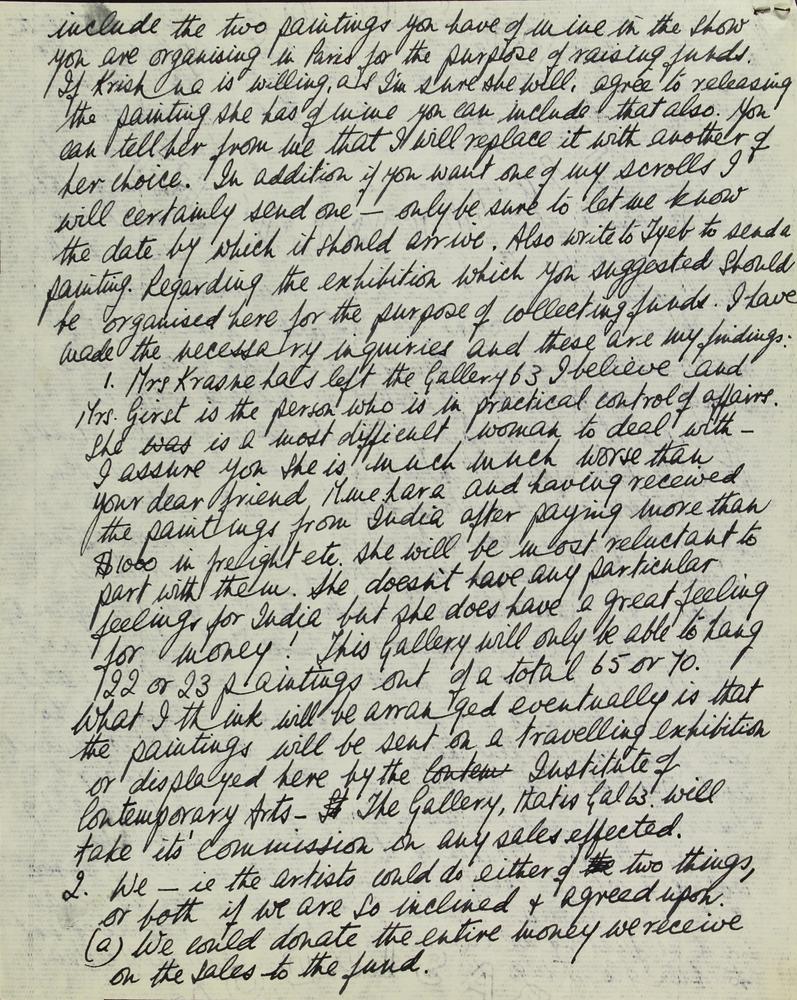 include the two paintings you have of mine in the show
you are organising in Paris for the purpose of raising funds.
If Krishna is willing, as I'm sure she will, agree to releasing
the painting she has of mine you can include that also. You
can tell her from me that I will replace it with another of
her choice. In addition if you want one of my scrolls I
will certainly send one — only be sure to let me know
the date by which it should arrive. Also write to Tyeb to send a
painting. Regarding the exhibition which you suggested should
be organised here for the purpose of collecting funds. I have
made the necessary inquiries and these are my findings:
1. Mrs Krasne has left the Gallery 63 I believe and
Mrs. Girst is the person who is in practical control of affairs.
She was is a most difficult woman to deal with —
I assure you she is much much worse than
your dear friend Mme hara and having received
the paintings from India after paying more than
$1000 in freight etc. she will be most reluctant to
part with them. She doesn't have any particular
feelings for India but she does have a great feeling
for money! This Gallery will only be able to hang
22 or 23 paintings out of a total 65 or 70.
What I think will be arranged eventually is that
the paintings will be sent on a travelling exhibition
or displayed here by the Contem Institute of
Contemporary Arts — The Gallery, that is Gal 63. will
take its' commission on any sales effected.
2. We — ie the artists could do either of the two things,
or both if we are so inclined & agreed upon.
(a) We could donate the entire money we receive
on the sales to the fund.